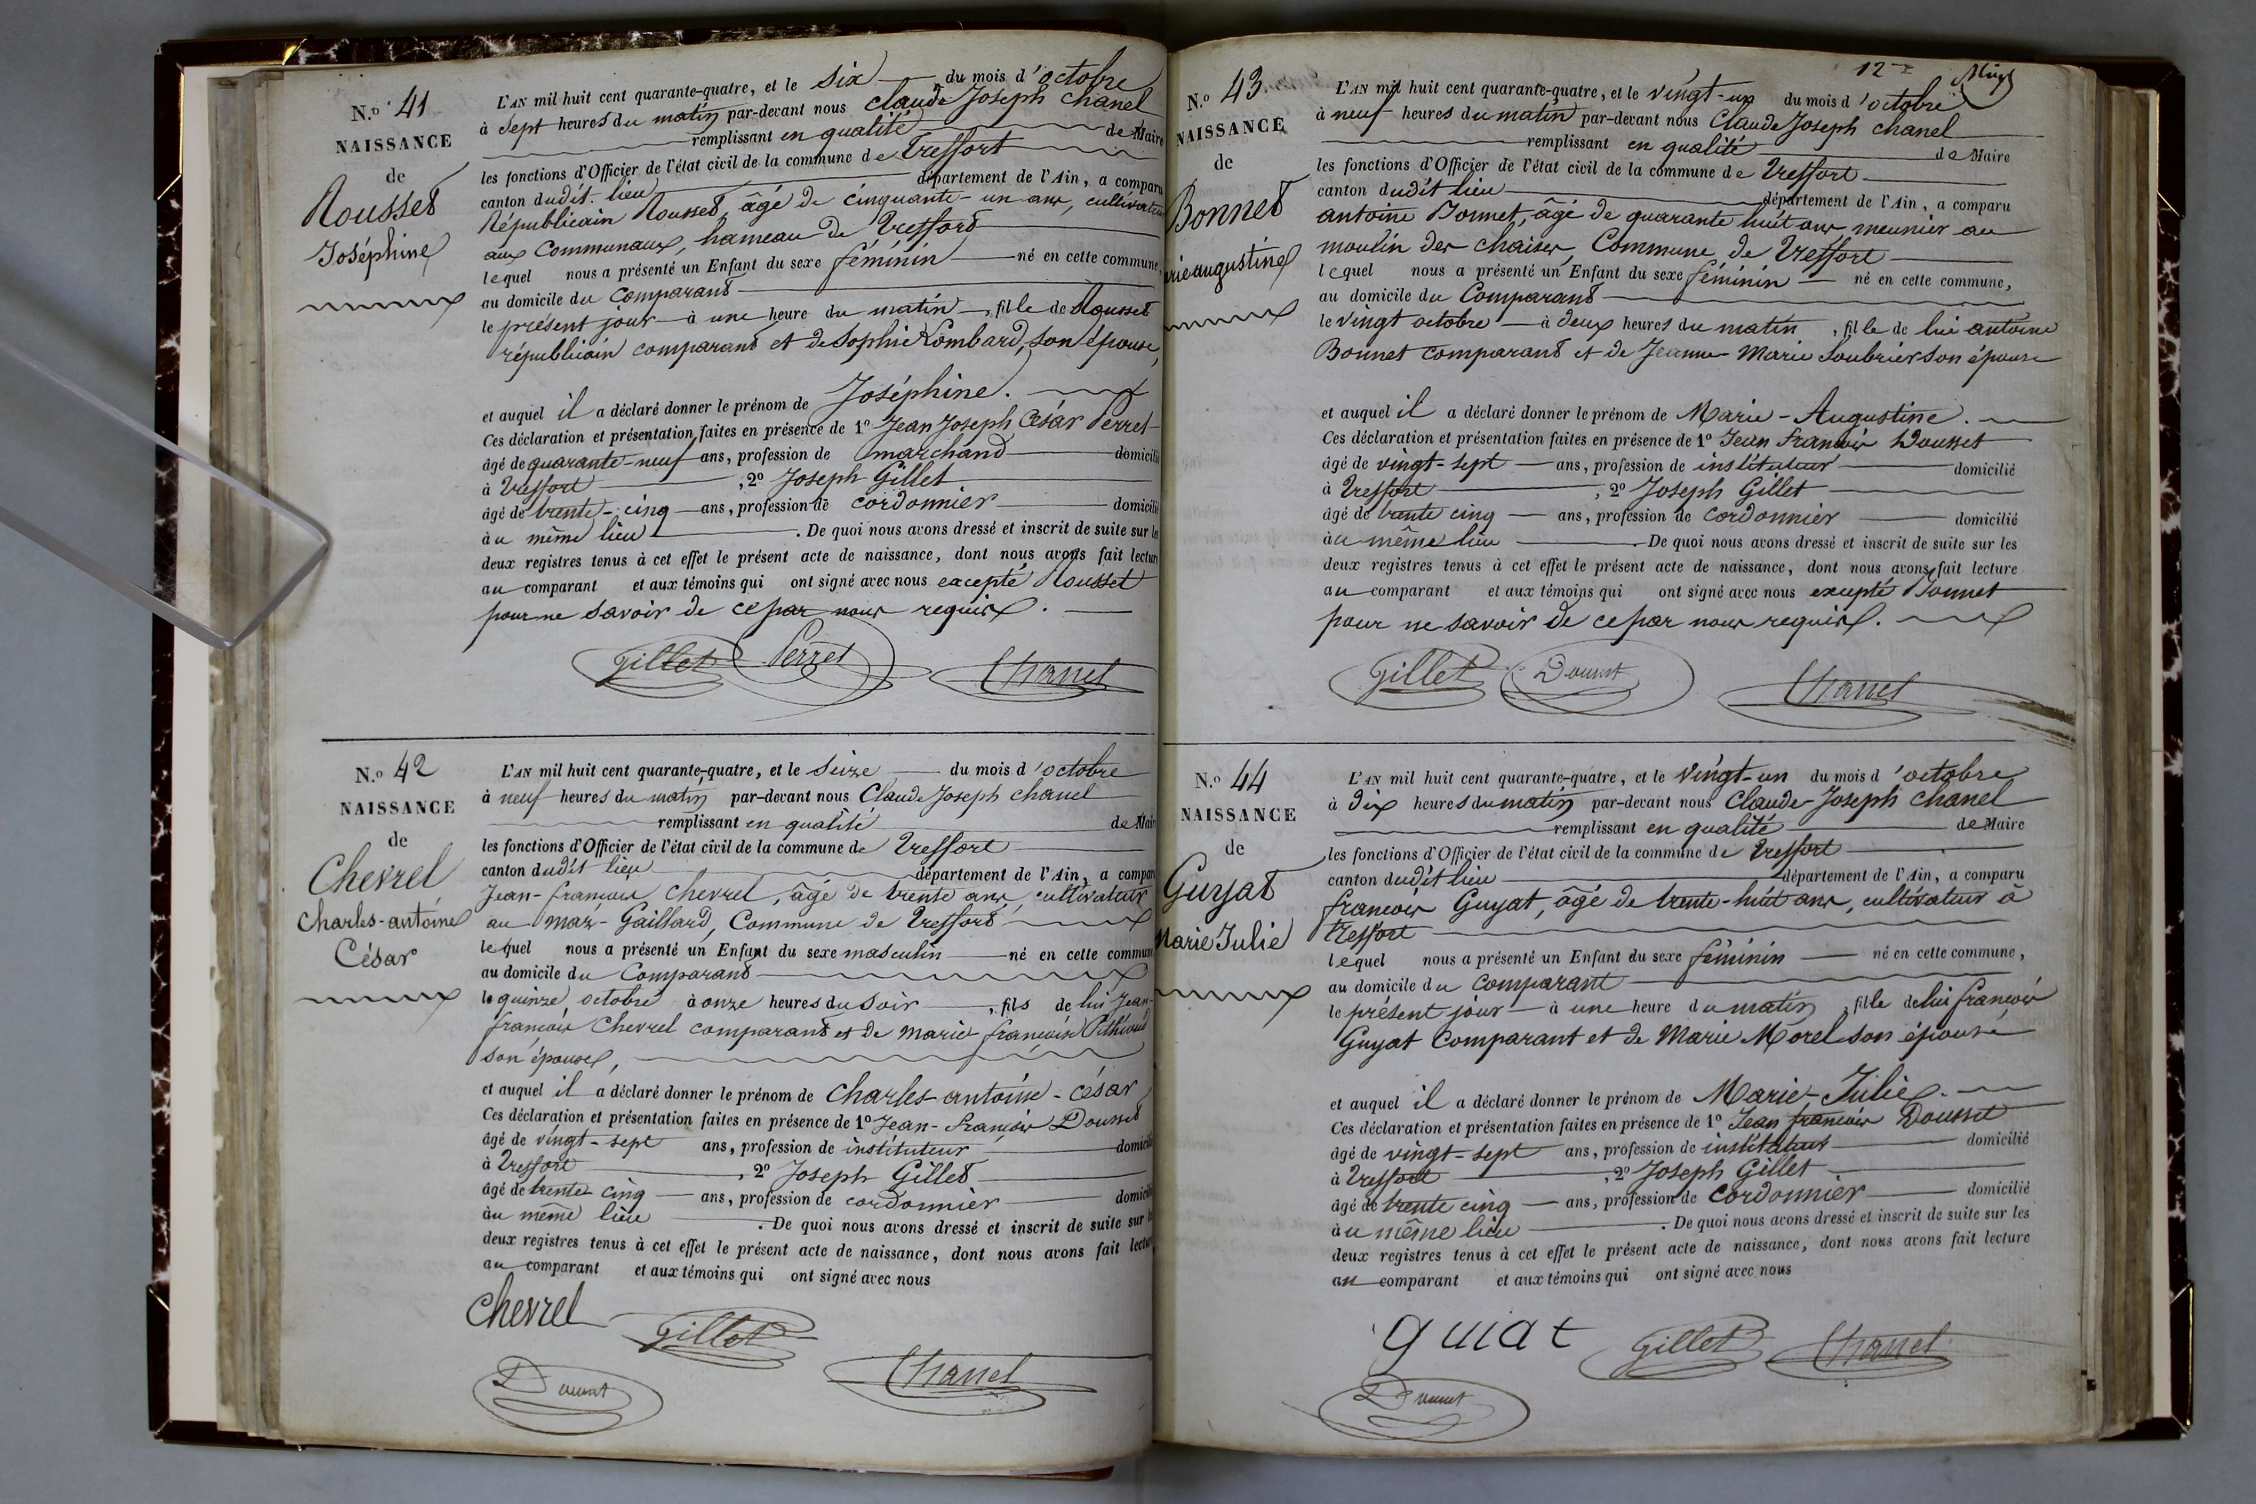 N.o 41
NAISSANCE
de
Rousset
Joséphine
L'AN mil huit cent quarante-quatre, et le six du mois d'octobre
à sept heures du matin par-devant nous Claude Joseph Chanel
remplissant en qualité de Maire
les fonctions d'Officier de l'état civil de la commune de Treffort
canton dudit lieu département de l'Ain, a comparu
Républicain Rousset, âgé de cinquante-un ans, cultivateur
aux Communaux, hameau de Treffort
lequel nous a présenté un Enfant du sexe féminin né en cette commune,
au domicile du Comparant
le présent jour à une heure du matin, fille de Rousset
républicain comparant et de Sophie Lombard, son épouse,
et auquel il a déclaré donner le prénom de Joséphine.
Ces déclaration et présentation faites en présence de 1o Jean Joseph César Perret
âgé de quarante-neuf ans, profession de marchand domicilié
à Treffort, 2o Joseph Gillet
âgé de trente-cinq ans, profession de cordonnier domicilié
àu même lieu. De quoi nous avons dressé et inscrit de suite sur les
deux registres tenus à cet effet le présent acte de naissance, dont nous avons fait lecture
au comparant et aux témoins qui ont signé avec nous excepté Rousset
pour ne savoir de ce par nous requis.
Gillet Perret Chanel
N.o 42
NAISSANCE
de
Chevrel
Charles-antoine
César
L'AN mil huit cent quarante-quatre, et le seize du mois d'octobre
à neuf heures du matin par-devant nous Claude Joseph Chanel
remplissant en qualité de Maire
les fonctions d'Officier de l'état civil de la commune de Treffort
canton dudit lieu département de l'Ain, a comparu
Jean-françois Chevrel, âgé de trente ans, cultivateur
au maz-Gaillard, Commune de Treffort
lequel nous a présenté un Enfant du sexe masculin né en cette commune
au domicile du Comparant
le quinze octobre à onze heures du soir, fils de lui Jean-
françois Chevrel comparant et de marie françoise
son épouse,
et auquel il a déclaré donner le prénom de Charles-antoine-César
Ces déclaration et présentation faites en présence de 1o Jean-françois Dousset
âgé de vingt-sept ans, profession de instituteur domicilié
à Treffort, 2o Joseph Gillet
âgé de trente cinq ans, profession de cordonnier domicilié
àu même lieu. De quoi nous avons dressé et inscrit de suite sur les
deux registres tenus à cet effet le présent acte de naissance, dont nous avons fait lecture
au comparant et aux témoins qui ont signé avec nous
Chevrel Gillet
Chanel
Dousset
12
N.o 43
NAISSANCE
de
Bonnet
rie augustine
L'AN mil huit cent quarante-quatre, et le vingt-un du mois d'octobre
à neuf heures du matin par-devant nous Claude Joseph Chanel
remplissant en qualité de Maire
les fonctions d'Officier de l'état civil de la commune de Treffort
canton dudit lieu département de l'Ain, a comparu
antoine Bonnet, âgé de quarante huit ans, meunier au
moulin des chaises, Commune de Treffort
lequel nous a présenté un Enfant du sexe féminin né en cette commune,
au domicile du Comparant
le vingt octobre à deux heures du matin, fille de lui antoine
Bonnet comparant et de Jeanne-Marie Soubrier son épouse
et auquel il a déclaré donner le prénom de Marie-Augustine.
Ces déclaration et présentation faites en présence de 1o Jean françois Dousset
âgé de vingt-sept ans, profession de instituteur domicilié
à Treffort, 2o Joseph Gillet
âgé de trente cinq ans, profession de cordonnier domicilié
àu même lieu. De quoi nous avons dressé et inscrit de suite sur les
deux registres tenus à cet effet le présent acte de naissance, dont nous avons fait lecture
au comparant et aux témoins qui ont signé avec nous excepté Bonnet
pour ne savoir de ce par nous requis.
Gillet Dousset Chanel
N.o 44
NAISSANCE
de
Guyat
Marie Julie
L'AN mil huit cent quarante-quatre, et le vingt-un du mois d'octobre
à dix heures du matin par-devant nous Claude-Joseph Chanel
remplissant en qualité de Maire
les fonctions d'Officier de l'état civil de la commune de Treffort
canton dudit lieu département de l'Ain, a comparu
françois Guyat, âgé de trente-huit ans, cultivateur à
treffort
lequel nous a présenté un Enfant du sexe féminin né en cette commune,
au domicile du comparant
le présent jour à une heure du matin, fille de lui françois
Guyat Comparant et de Marie Morel son épouse
et auquel il a déclaré donner le prénom de Marie-Julie.
Ces déclaration et présentation faites en présence de 1o Jean françois Dousset
âgé de vingt-sept ans, profession de instituteur domicilié
à Treffort, 2o Joseph Gillet
âgé de trente cinq ans, profession de cordonnier domicilié
àu même lieu. De quoi nous avons dressé et inscrit de suite sur les
deux registres tenus à cet effet le présent acte de naissance, dont nous avons fait lecture
au comparant et aux témoins qui ont signé avec nous
guiat Gillet Chanel
Dousset